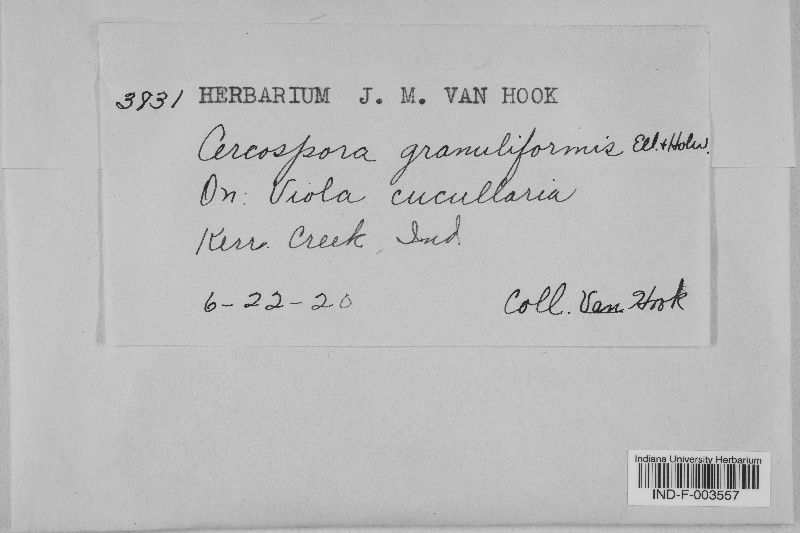 3931 HERBARIUM J. M. VAN HOOK
Cercospora granuliformis Ell. & Holw.
On: Viola cucullaria
Kerr Creek, Ind.
6-22-20 Coll. Van Hook
Indiana University Herbarium
IND-F-003557